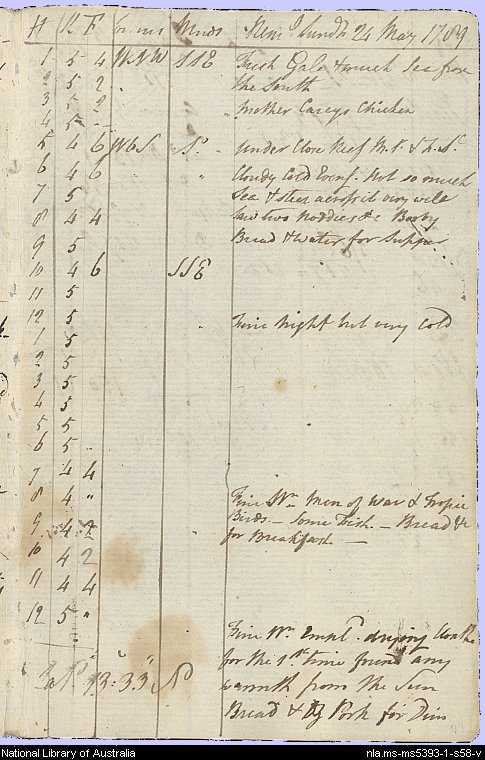 H K F Courses Winds Rem.s Sund.y 24 May 1789
1 5 4 WNW SSE Fresh Gale & much Sea from
2 5 2 " the South
3 5 2 " Mother Careys Chicken
4 5 -
5 4 6 WbS S.o under Close Reef M.T. & F. S.l
6 4 6 " " Cloudy Cold Even.g. Not so much
7 5 Sea & steer aforesd very well
8 4 4 Saw two Noddies & a Booby
9 5 Bread & Water for Supper
10 4 6 SSE
11 5
12 5 " Fine Night but very Cold
1 5
2 5
3 5
4 5
5 5
6 5 "
7 4 4
8 4 " Fine Wr. Men of War & Tropic
9 4 2 Birds - Some Fish - Bread &c
10 4 2 for Breakfast -
11 4 4
12 5 "
Fine Wr. Empl.d drying Cloaths
for the 1st. time found any
Lat N.o 13.33 S.o warmth from the Sun
Bread & Oz Pork for Din
National Library of Australia nla.ms-ms5393-1-s58-v